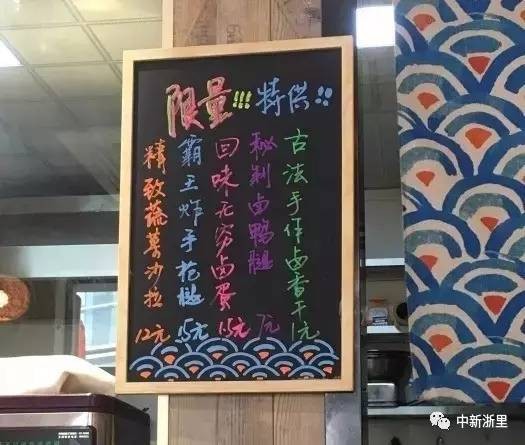 限量!!! 特供!!
古法手作卤香干 1元
秘制卤鸭腿 7元
回味无穷卤蛋 1.5元
霸王炸手枪腿 15元
精致蔬菓沙拉 12元
中新浙里